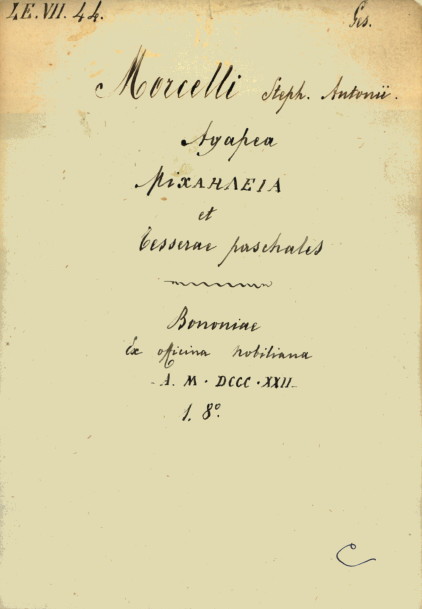 LE.VII.44. Ges.
Morcelli Steph. Antonii.
Agapea
ΜΙΧΑΗΛΕΙΑ
et
Tesserae paschales
Bononiae
Ex officina Nobiliana
A. M. DCCC. XXII
1. 8°.
C